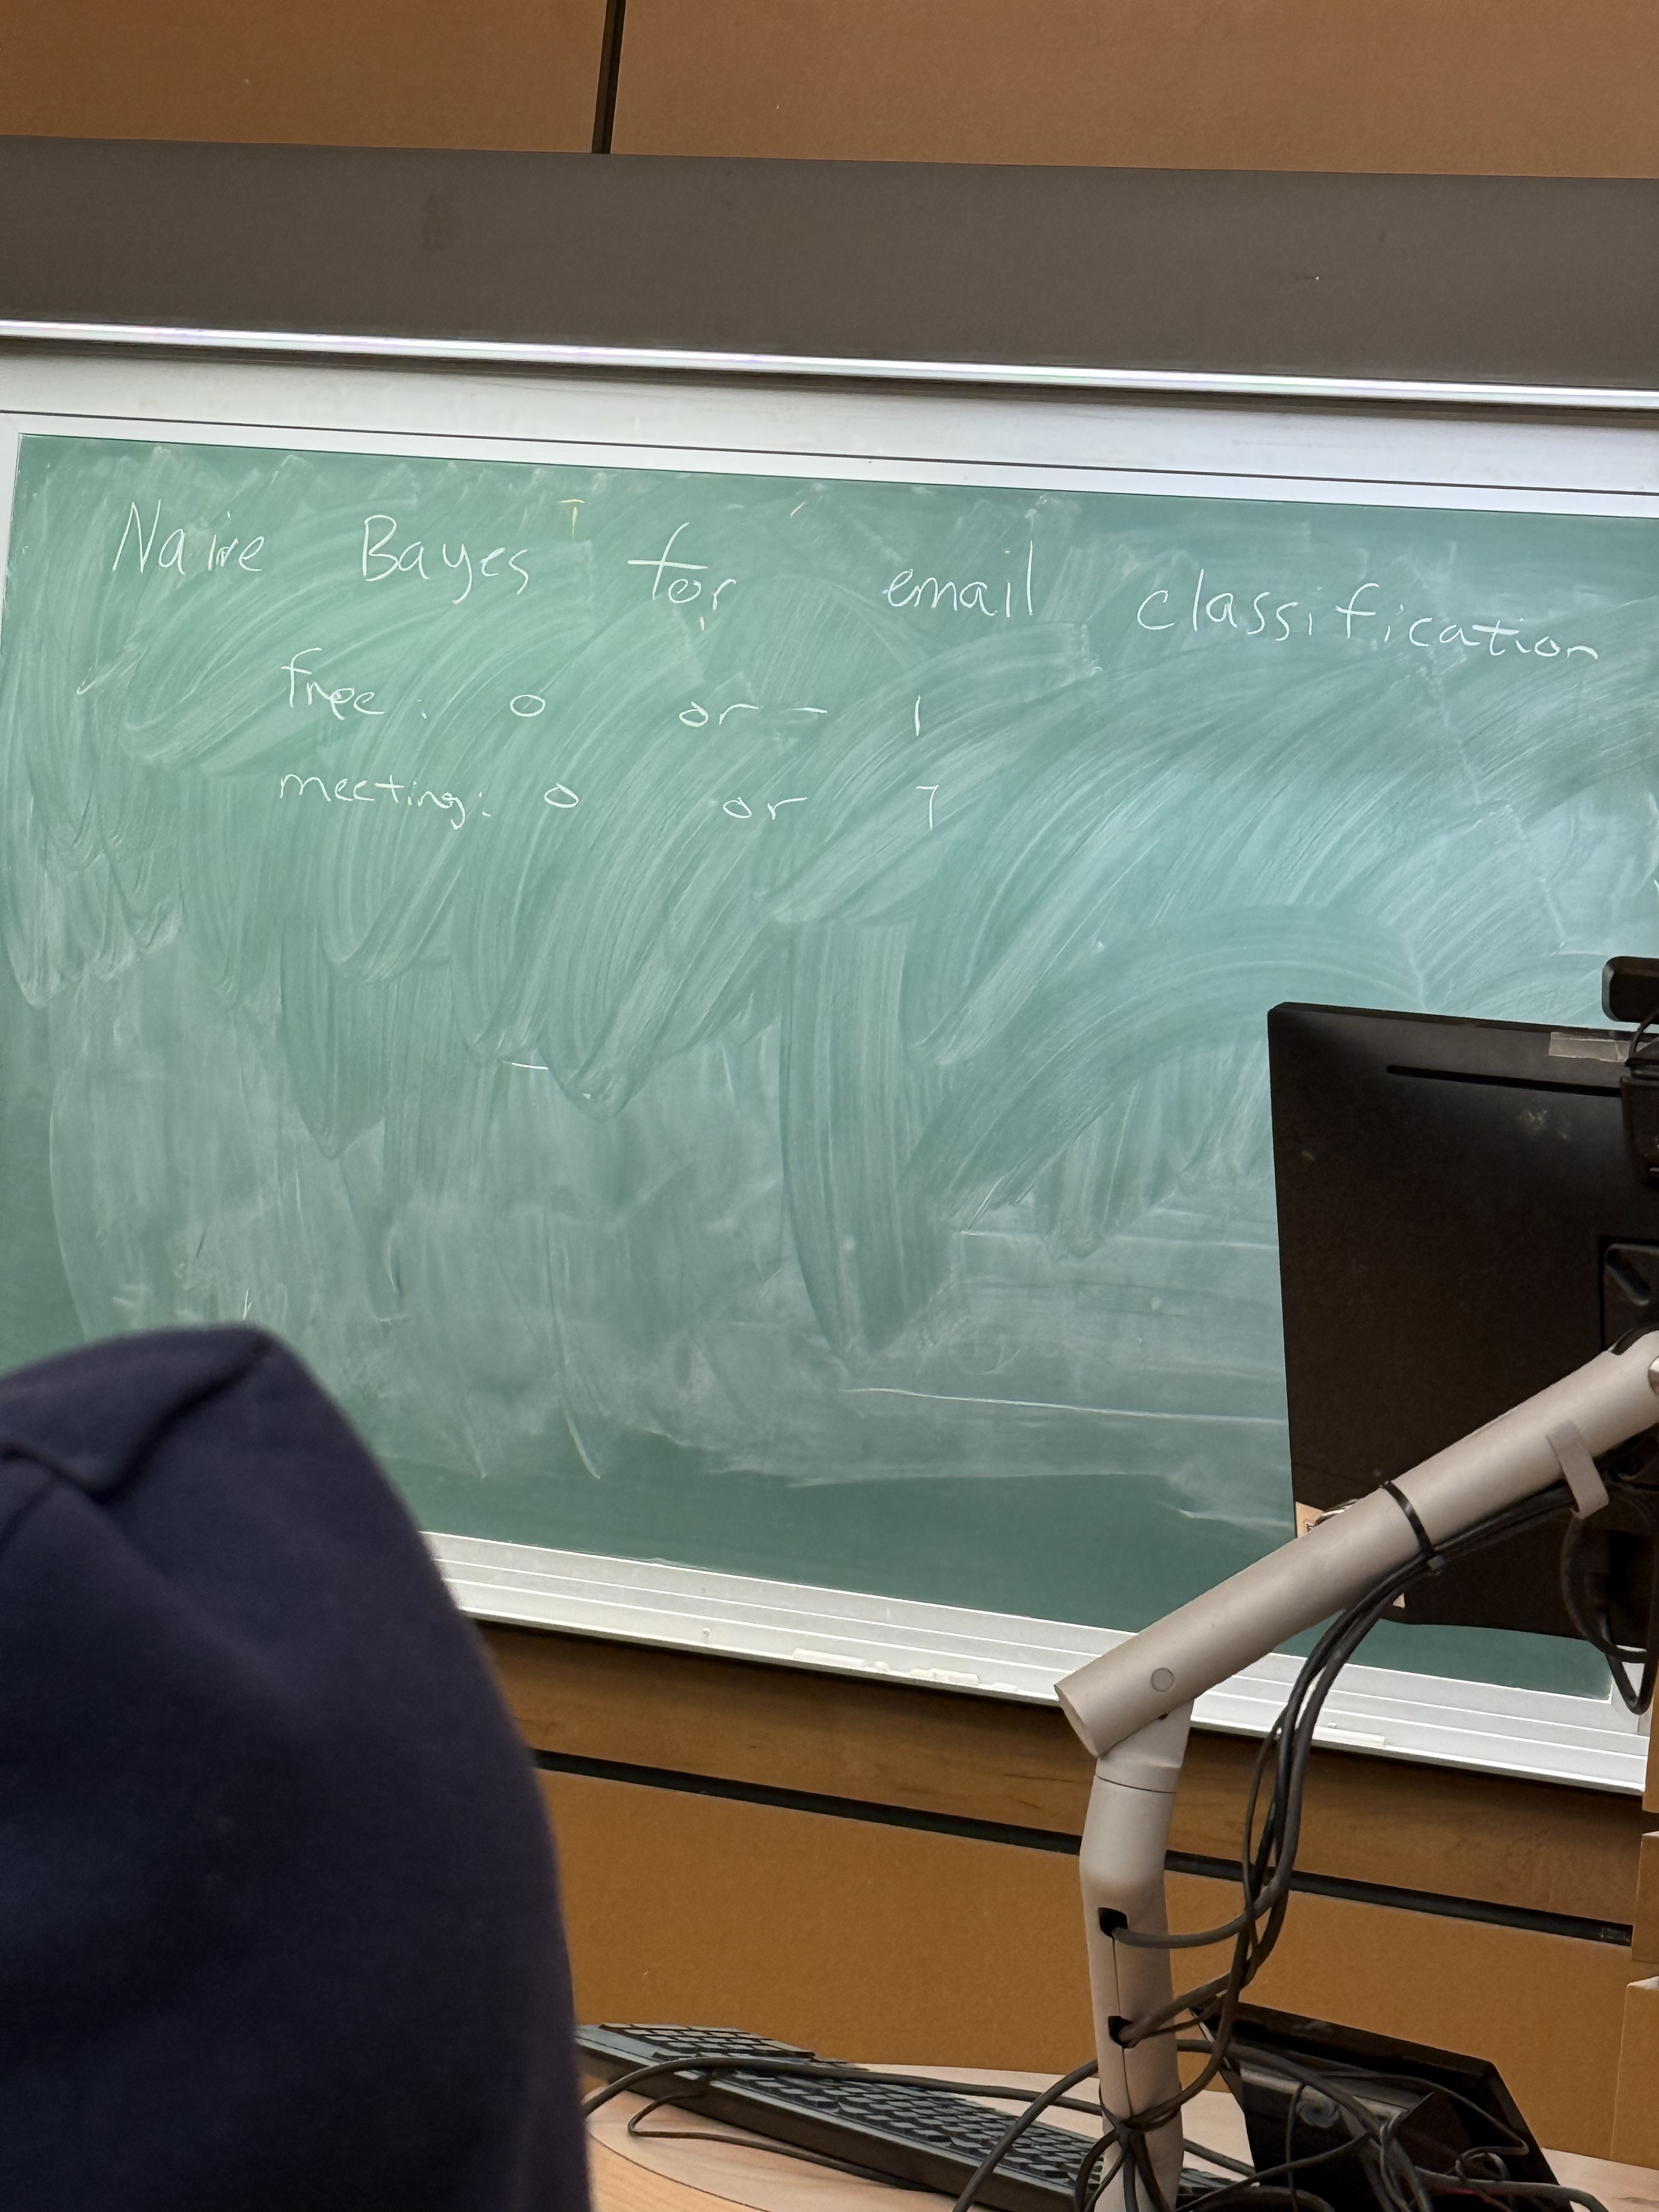 Naive Bayes for email classification
free: 0 or 1
meeting: 0 or 1